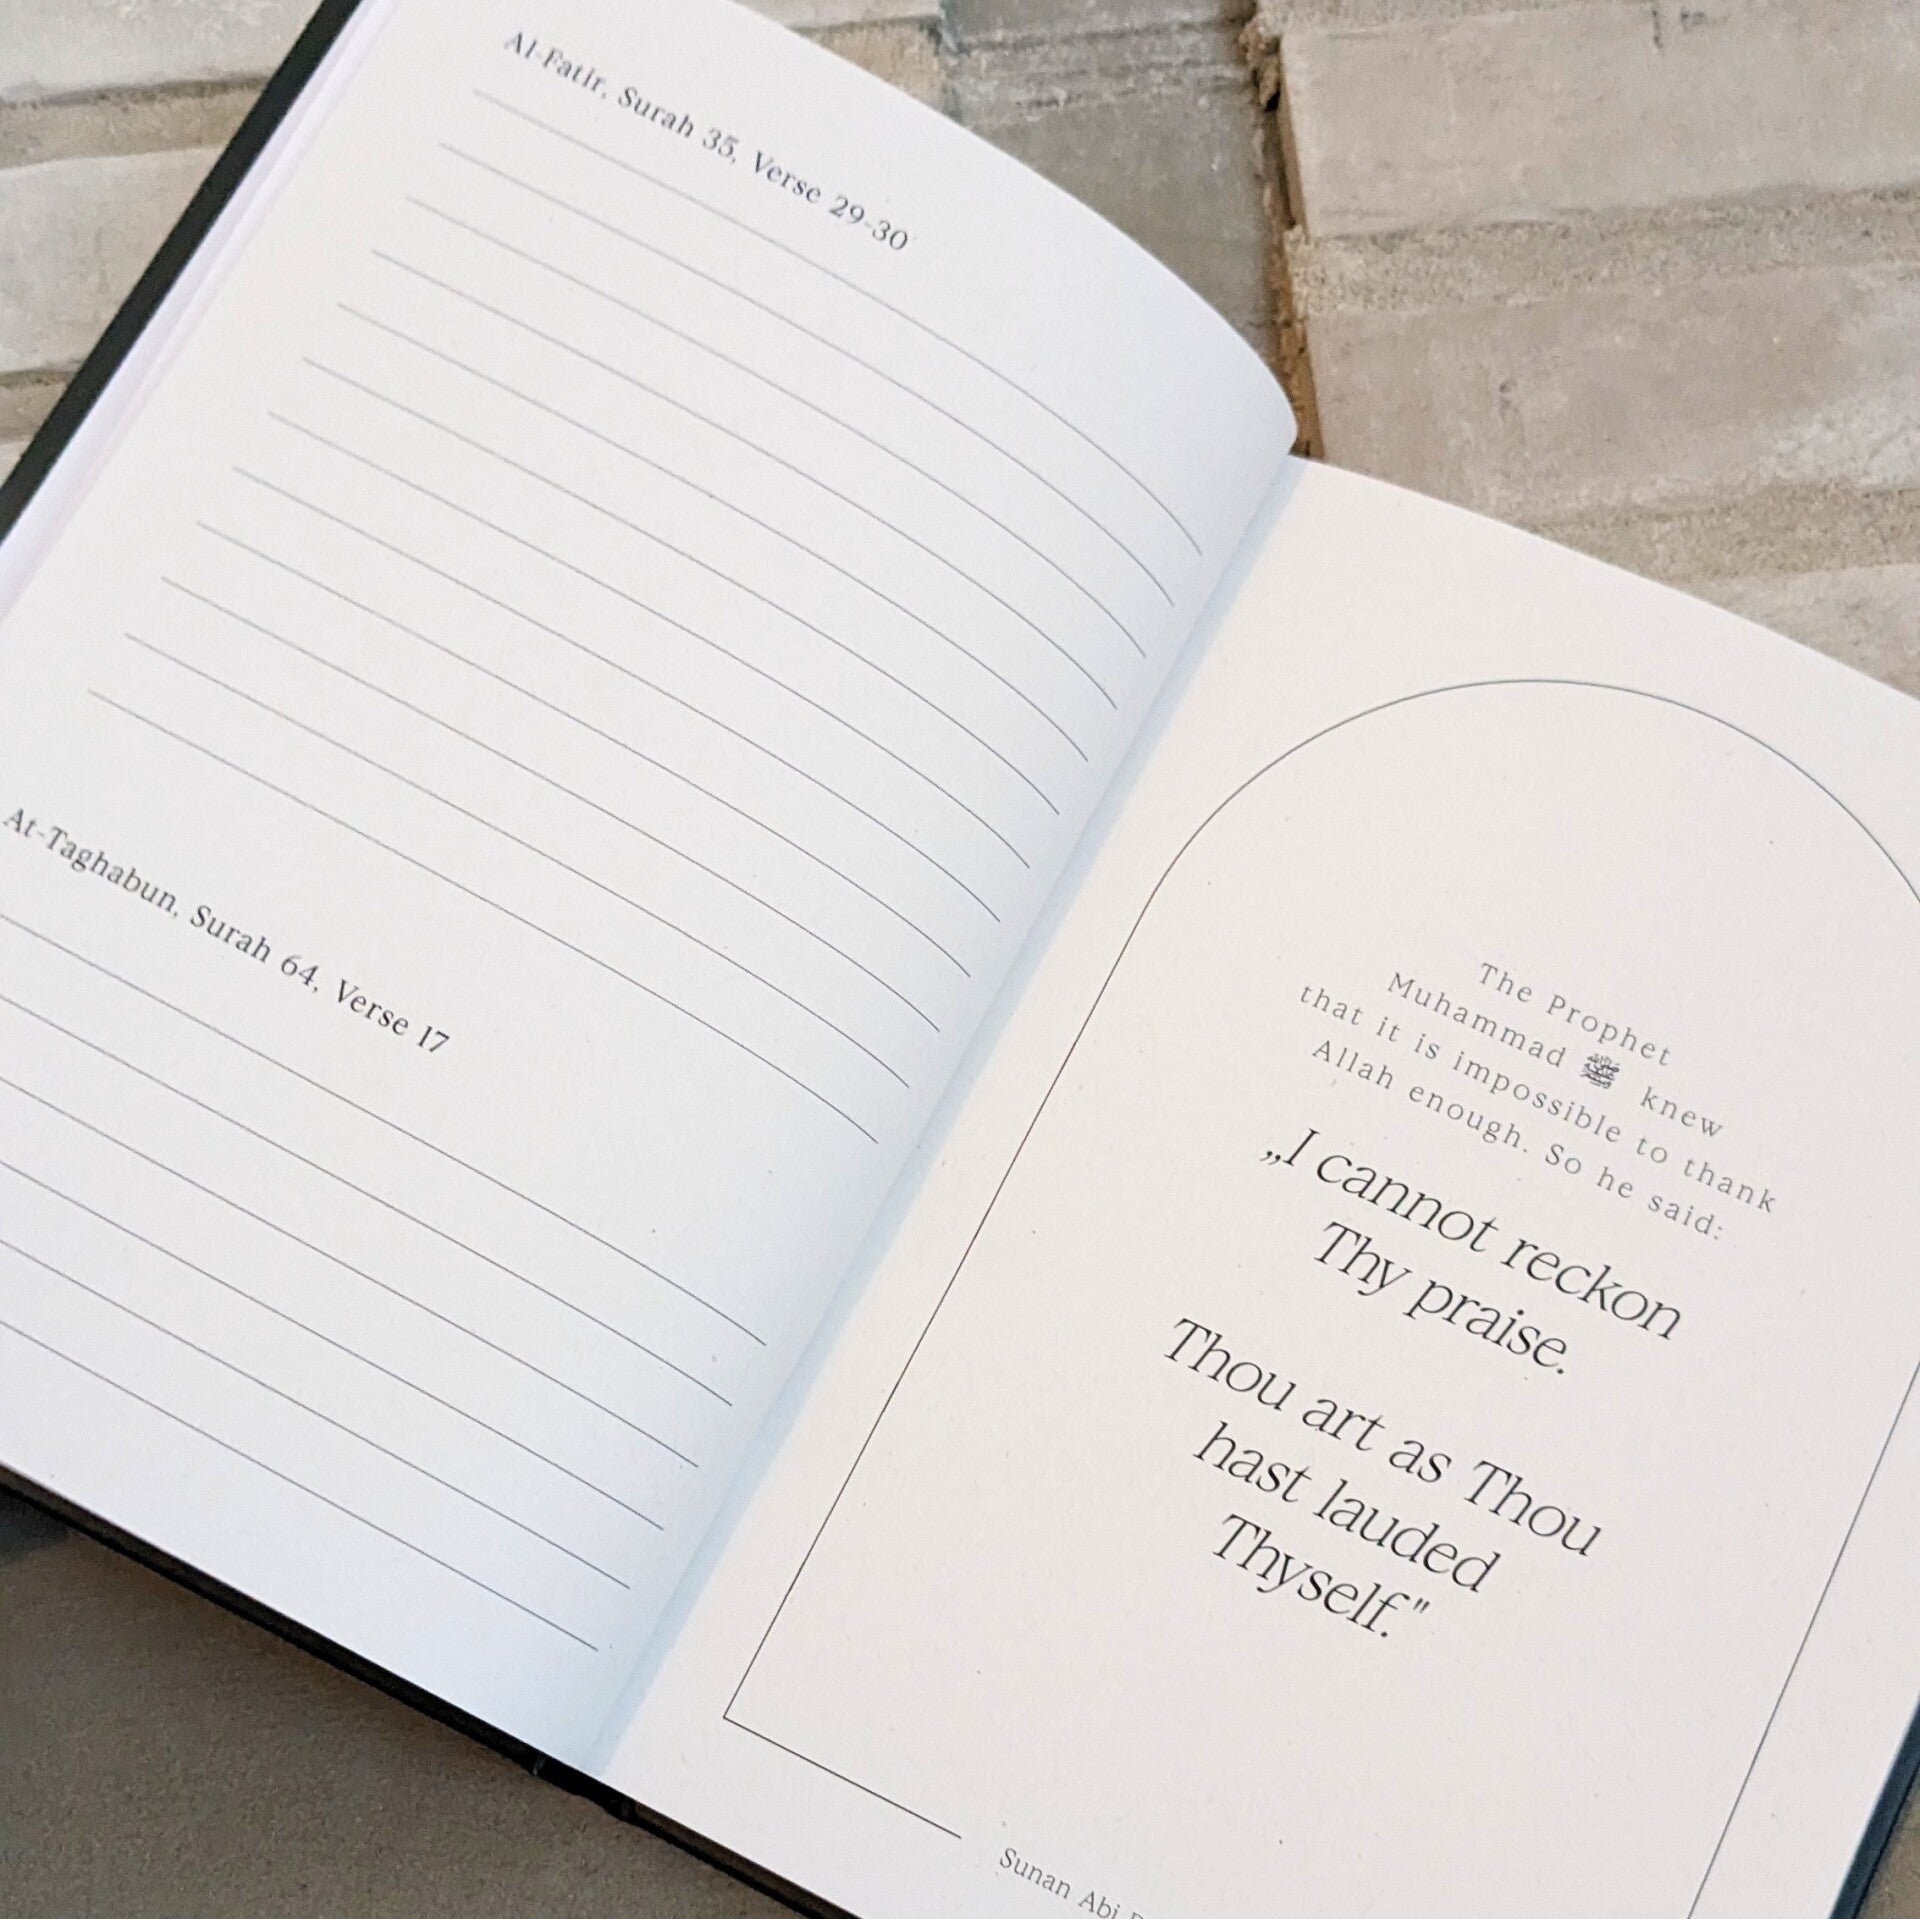 Al-Fatir, Surah 35, Verse 29-30
At-Taghabun, Surah 64, Verse 17
The Prophet
Muhammad ﷺ knew
that it is impossible to thank
Allah enough. So he said:
„I cannot reckon
Thy praise.
Thou art as Thou
hast lauded
Thyself."
Sunan Abi